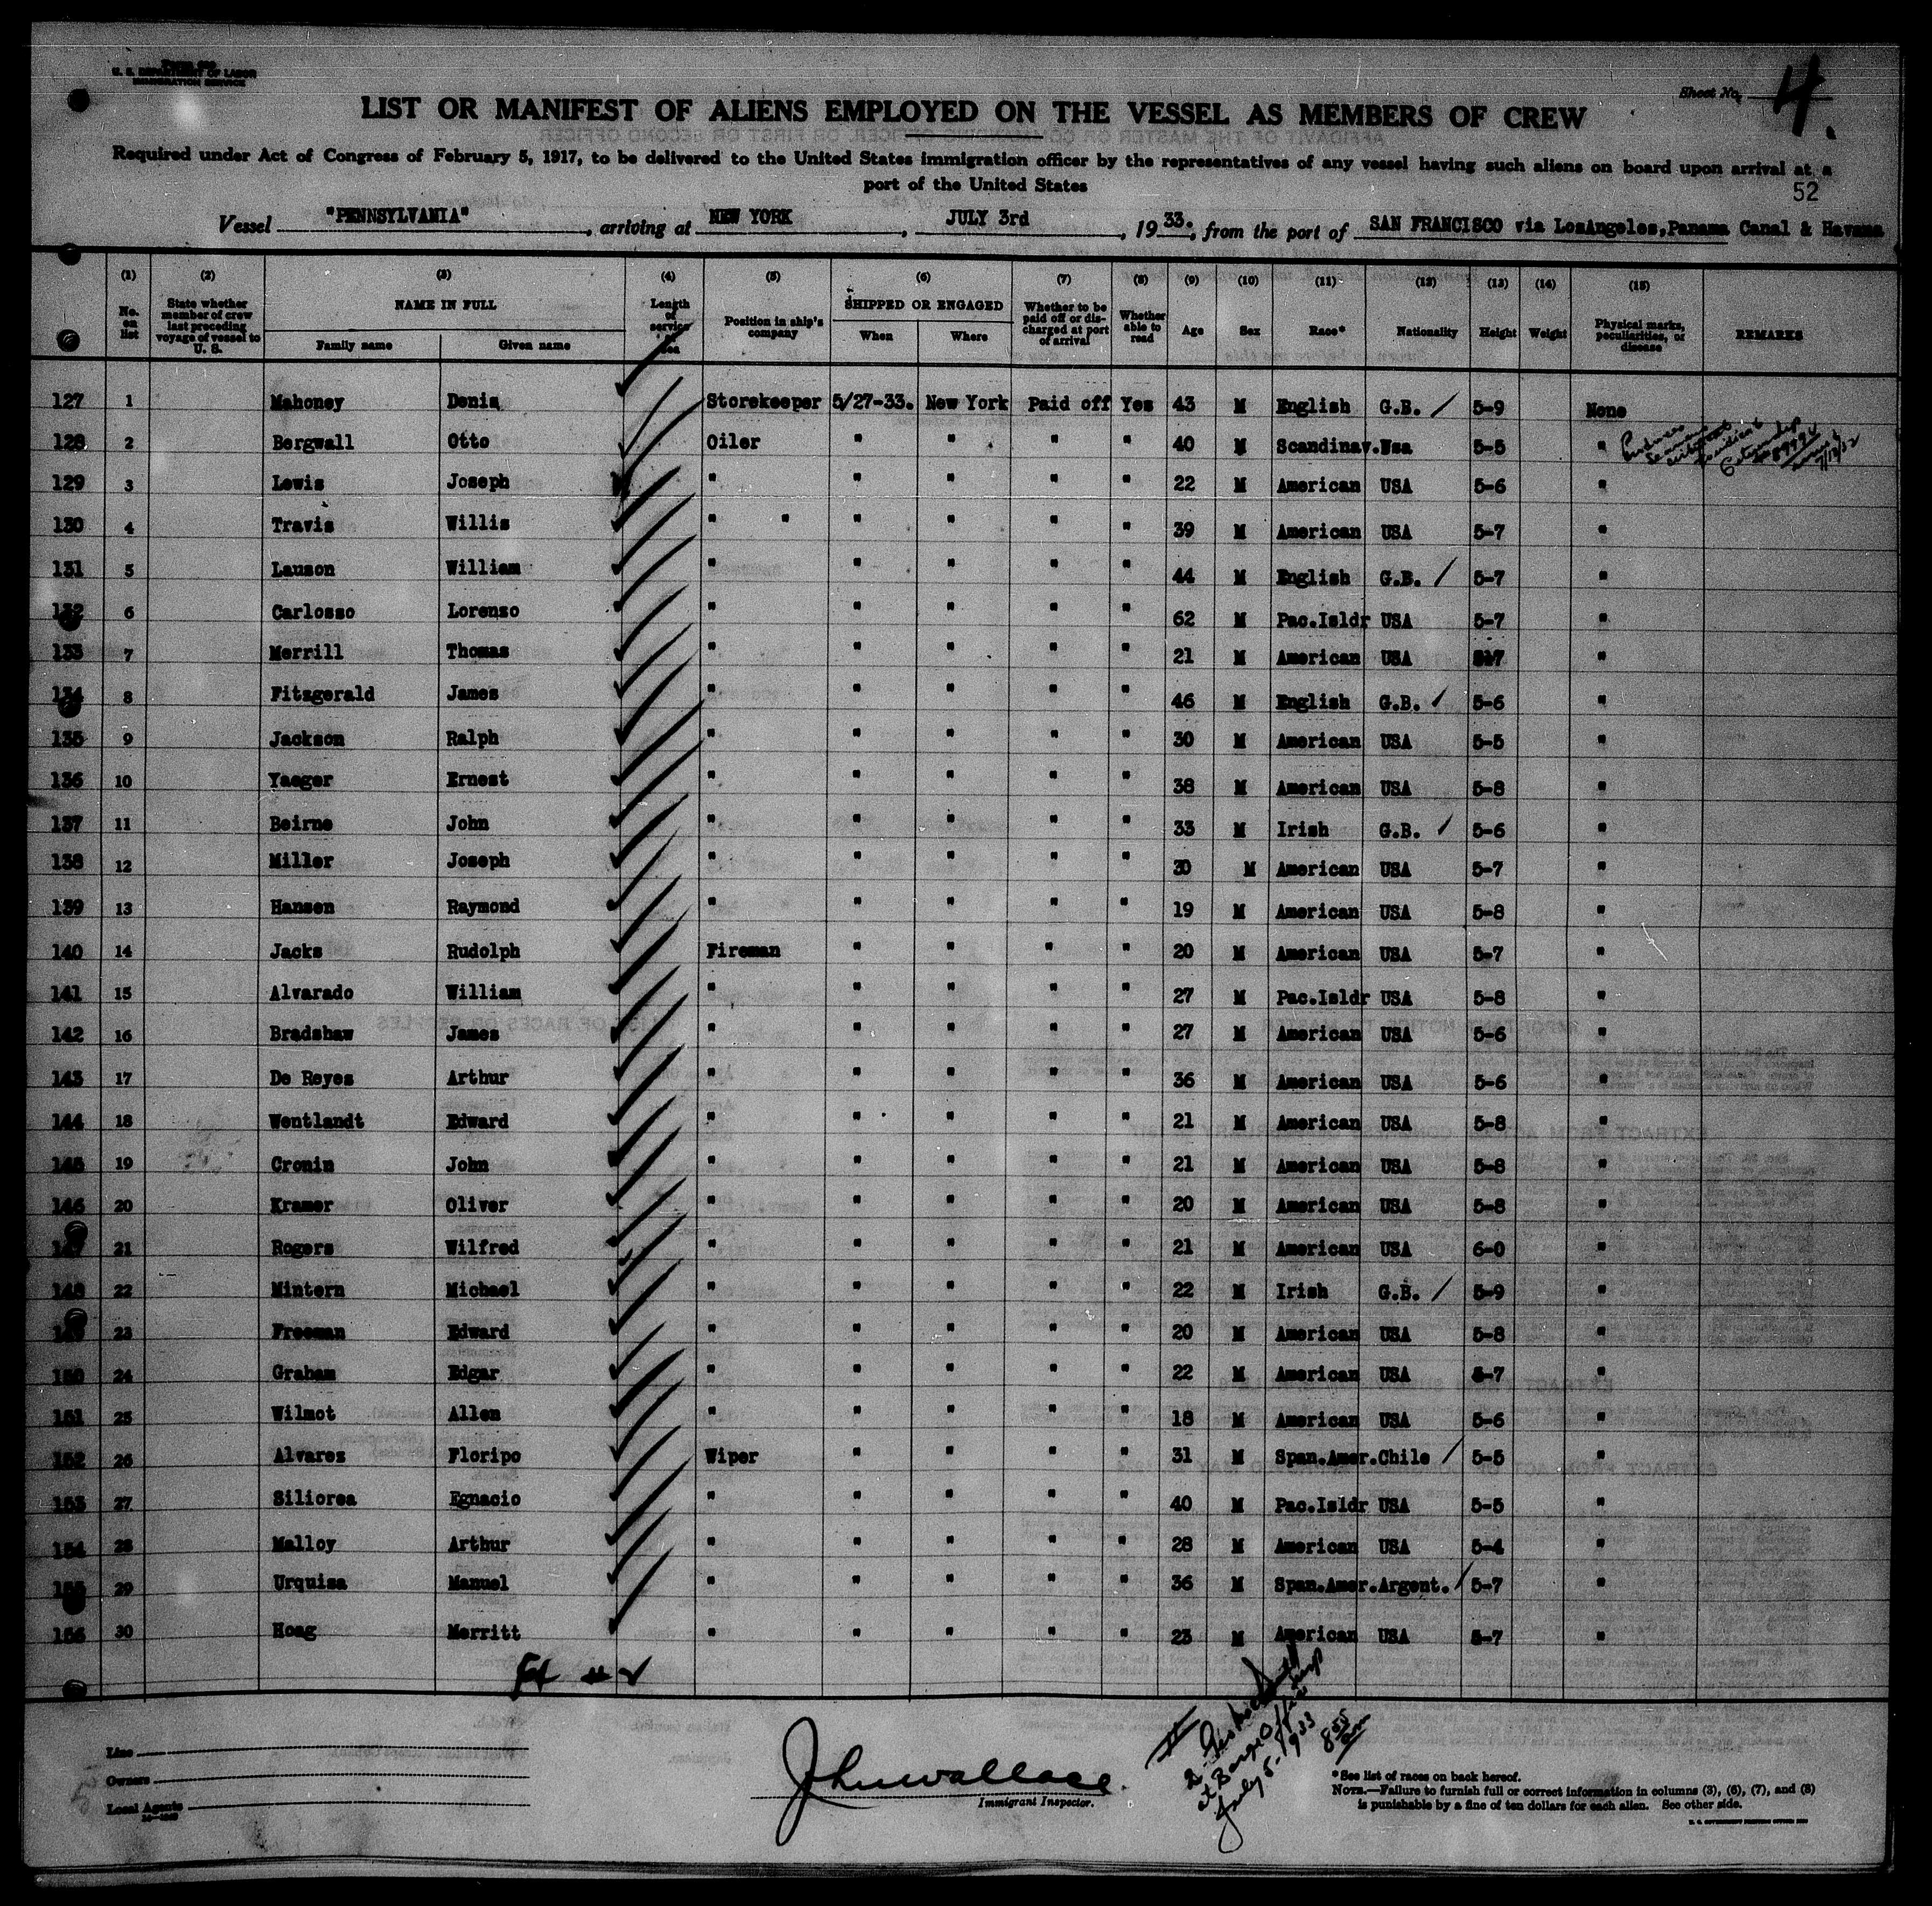 Form 680
U. S. DEPARTMENT OF LABOR
IMMIGRATION SERVICE
Sheet No. 4.
LIST OR MANIFEST OF ALIENS EMPLOYED ON THE VESSEL AS MEMBERS OF CREW
Required under Act of Congress of February 5, 1917, to be delivered to the United States immigration officer by the representatives of any vessel having such aliens on board upon arrival at a
port of the United States
52
Vessel "PENNSYLVANIA", arriving at NEW YORK, JULY 3rd, 1933., from the port of SAN FRANCISCO via LosAngeles,Panama Canal & Havana
(1) (2) (3) (4) (5) (6) (7) (8) (9) (10) (11) (12) (13) (14) (15)
No. on list State whether member of crew last preceding voyage of vessel to U. S. NAME IN FULL Family name Given name Length of service at sea Position in ship's company SHIPPED OR ENGAGED When Where Whether to be paid off or discharged at port of arrival Whether able to read Age Sex Race* Nationality Height Weight Physical marks, peculiarities, or disease REMARKS
127 1 Mahoney Denis Storekeeper 5/27-33. New York Paid off Yes 43 M English G.B. 5-9 None
128 2 Bergwall Otto Oiler " " " " 40 M Scandinav.Usa 5-5 "
129 3 Lewis Joseph " " " " " 22 M American USA 5-6 "
130 4 Travis Willis " " " " " " 39 M American USA 5-7 "
131 5 Lauson William " " " " " 44 M English G.B. 5-7 "
132 6 Carlosso Lorenzo " " " " " 62 M Pac.Isldr USA 5-7 "
133 7 Merrill Thomas " " " " " 21 M American USA 5-7 "
134 8 Fitzgerald James " " " " " 46 M English G.B. 5-6 "
135 9 Jackson Ralph " " " " " 30 M American USA 5-5 "
136 10 Yaeger Ernest " " " " " 38 M American USA 5-8 "
137 11 Beirne John " " " " " 33 M Irish G.B. 5-6 "
138 12 Miller Joseph " " " " " 30 M American USA 5-7 "
139 13 Hansen Raymond " " " " " 19 M American USA 5-8 "
140 14 Jacks Rudolph Fireman " " " " 20 M American USA 5-7 "
141 15 Alvarado William " " " " " 27 M Pac.Isldr USA 5-8 "
142 16 Bradshaw James " " " " " 27 M American USA 5-6 "
143 17 De Reyes Arthur " " " " " 36 M American USA 5-6 "
144 18 Wentlandt Edward " " " " " 21 M American USA 5-8 "
145 19 Cronin John " " " " " 21 M American USA 5-8 "
146 20 Kramer Oliver " " " " " 20 M American USA 5-8 "
147 21 Rogers Wilfred " " " " " 21 M American USA 6-0 "
148 22 Mintern Michael " " " " " 22 M Irish G.B. 5-9 "
149 23 Freeman Edward " " " " " 20 M American USA 5-8 "
150 24 Graham Edgar " " " " " 22 M American USA 5-7 "
151 25 Wilmot Allen " " " " " 18 M American USA 5-6 "
152 26 Alvares Floripo Wiper " " " " 31 M Span.Amer.Chile 5-5 "
153 27 Siliorea Egnacio " " " " " 40 M Pac.Isldr USA 5-5 "
154 28 Malloy Arthur " " " " " 28 M American USA 5-4 "
155 29 Urquisa Manuel " " " " " 36 M Span.Amer.Argent. 5-7 "
156 30 Hoag Merritt " " " " " 23 M American USA 5-7 "
Line
Owners
Local Agents
Jhnwallace
Immigrant Inspector.
at Barge Office
July 5-1933
8 55 am
*See list of races on back hereof.
NOTE.—Failure to furnish full or correct information in columns (3), (6), (7), and (8)
is punishable by a fine of ten dollars for each alien. See other side.